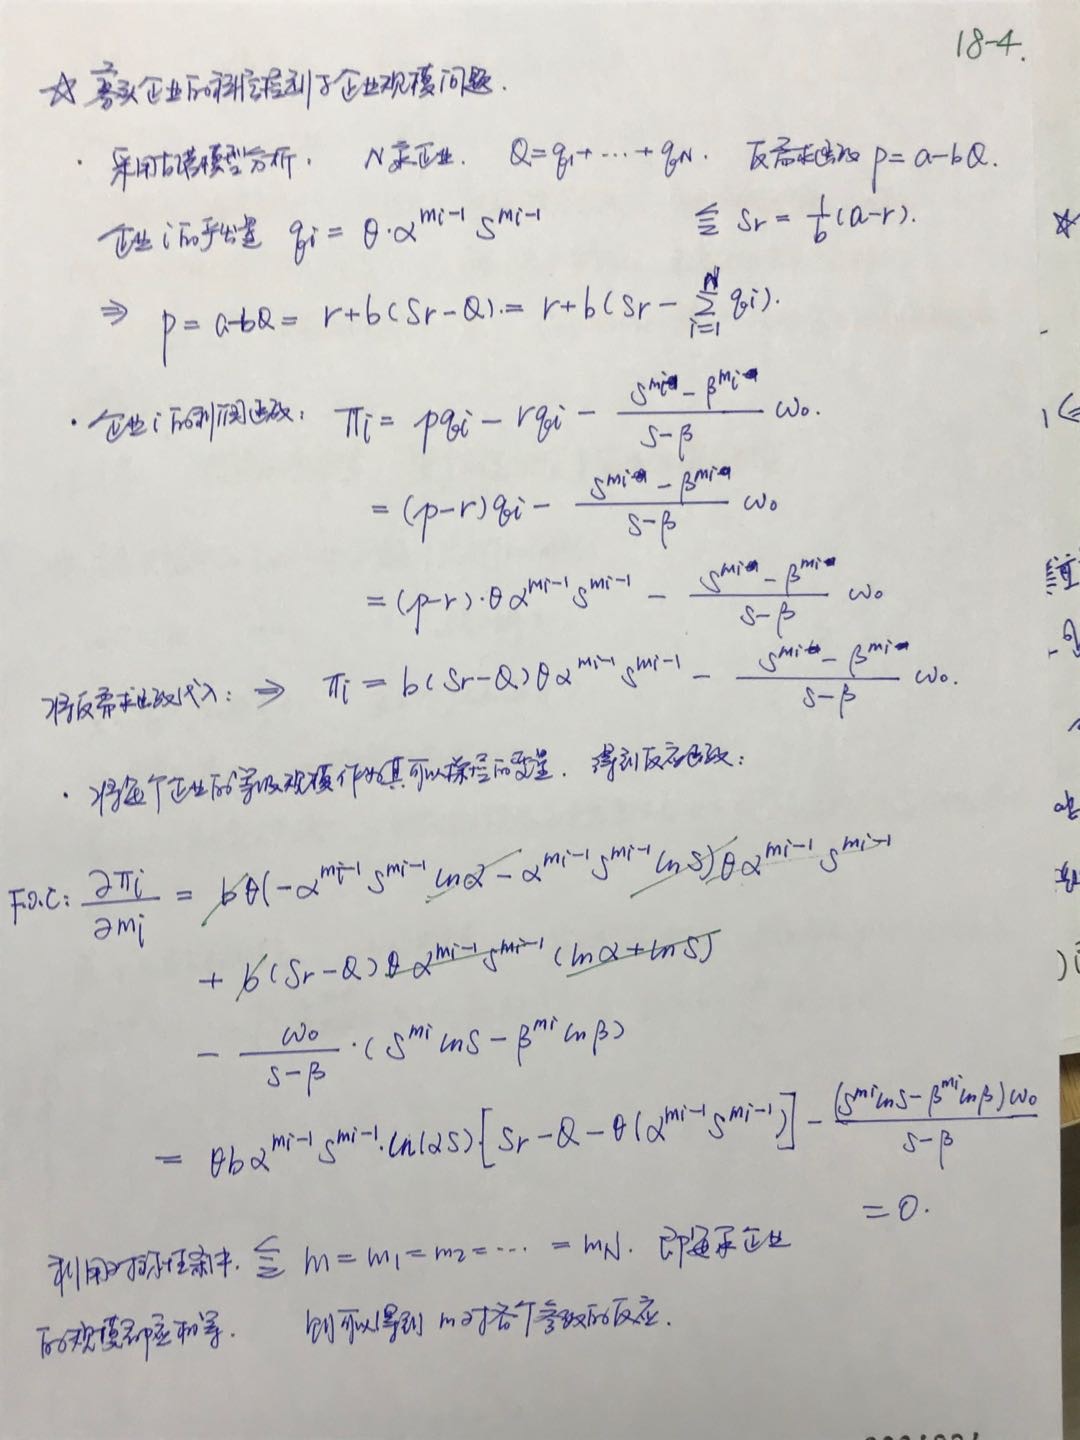 18-4.
☆ 寡头企业的科层控制与企业规模问题.
· 采用古诺模型分析. N家企业. Q=q₁+…+q_N. 反需求函数 p=a-bQ.
企业i的产出量 q_i = θ·α^{m_i-1} S^{m_i-1} 令 S_r = \frac{1}{b}(a-r).
⇒ p=a-bQ= r+b(S_r-Q).= r+b(S_r-\sum_{i=1}^{N} q_i).
· 企业i的利润函数: π_i = pq_i - rq_i - \frac{S^{m_i}-β^{m_i}}{S-β} ω₀.
= (p-r)q_i - \frac{S^{m_i}-β^{m_i}}{S-β} ω₀
= (p-r)·θα^{m_i-1}S^{m_i-1} - \frac{S^{m_i}-β^{m_i}}{S-β} ω₀
将反需求函数代入: ⇒ π_i = b(S_r-Q)θα^{m_i-1}S^{m_i-1} - \frac{S^{m_i}-β^{m_i}}{S-β} ω₀.
· 将每个企业的等级规模作为其可以操控的变量. 得到反应函数:
F.O.C: \frac{∂π_i}{∂m_i} = bθ(-α^{m_i-1}S^{m_i-1}lnα - α^{m_i-1}S^{m_i-1}lnS)θα^{m_i-1}S^{m_i-1}
+ b(S_r-Q)θα^{m_i-1}S^{m_i-1}(lnα+lnS)
- \frac{ω₀}{S-β}·(S^{m_i}lnS-β^{m_i}lnβ)
= θbα^{m_i-1}S^{m_i-1}·ln(αS)[S_r-Q-θ(α^{m_i-1}S^{m_i-1})] - \frac{(S^{m_i}lnS-β^{m_i}lnβ)ω₀}{S-β}
=0.
利用对称性条件. 令 m=m₁=m₂=…=m_N. 即每家企业
的规模都应相等. 则可以得到 m对各个参数的反应.